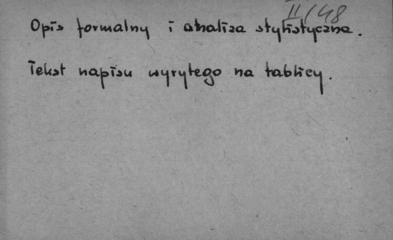 II/48
Opis formalny i analiza stylistyczna.
Tekst napisu wyrytego na tablicy.